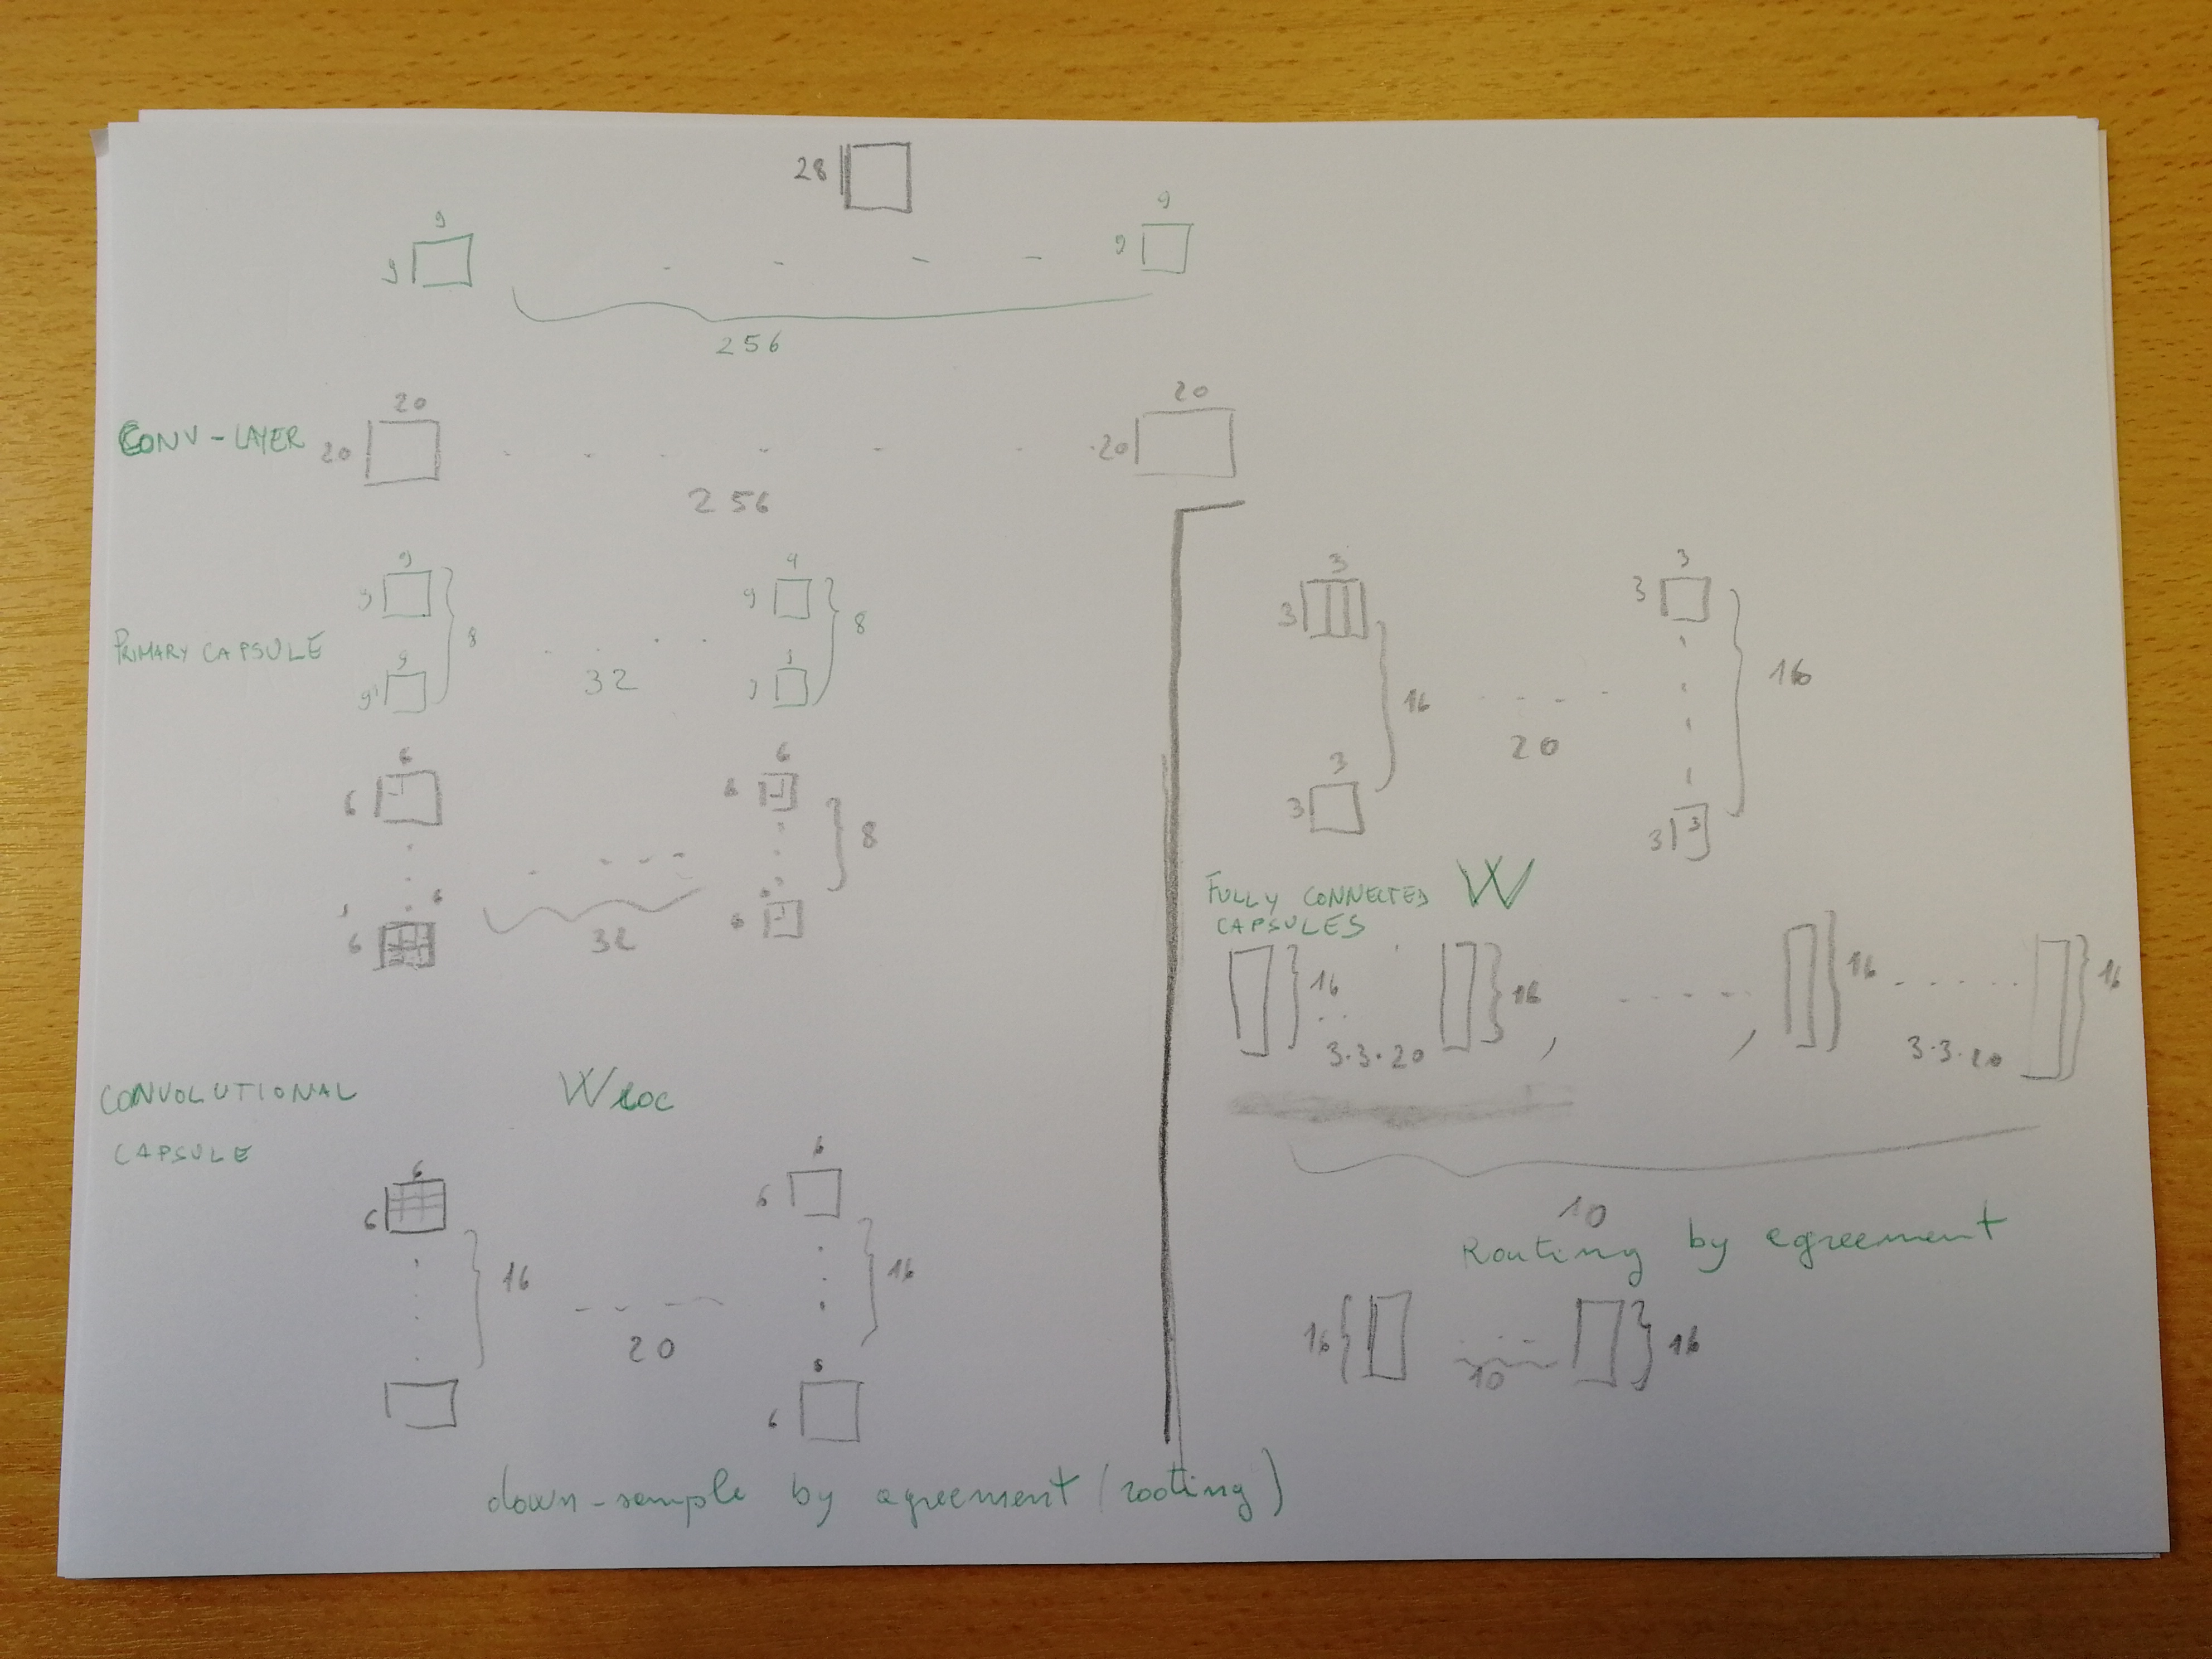 28
9 9
9 9
256
CONV-LAYER 20 20
20 20
256
PRIMARY CAPSULE
9 9
9 9
8 8
9 9
9
32
6 6
6 6
8
6 6
6 6
32
CONVOLUTIONAL Wloc
CAPSULE
6 6
6 6
16 16
20
6
6
down-sample by agreement (rooting)
3 3
3 3
16 16
20
3 3
3 3
FULLY CONNECTED W
CAPSULES
16 16 16 16
3.3.20 , , 3.3.20
10
Routing by agreement
16 16
10